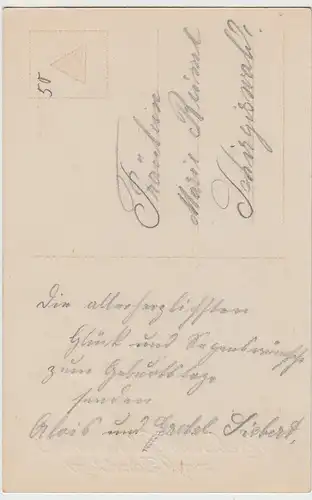 50
Fräulein
Marie Reimer
Schirgiswalde
Die allerherzlichsten
Glück und Segenswünsche
zum Geburtstage
senden
Alois und Gretel Siebert,